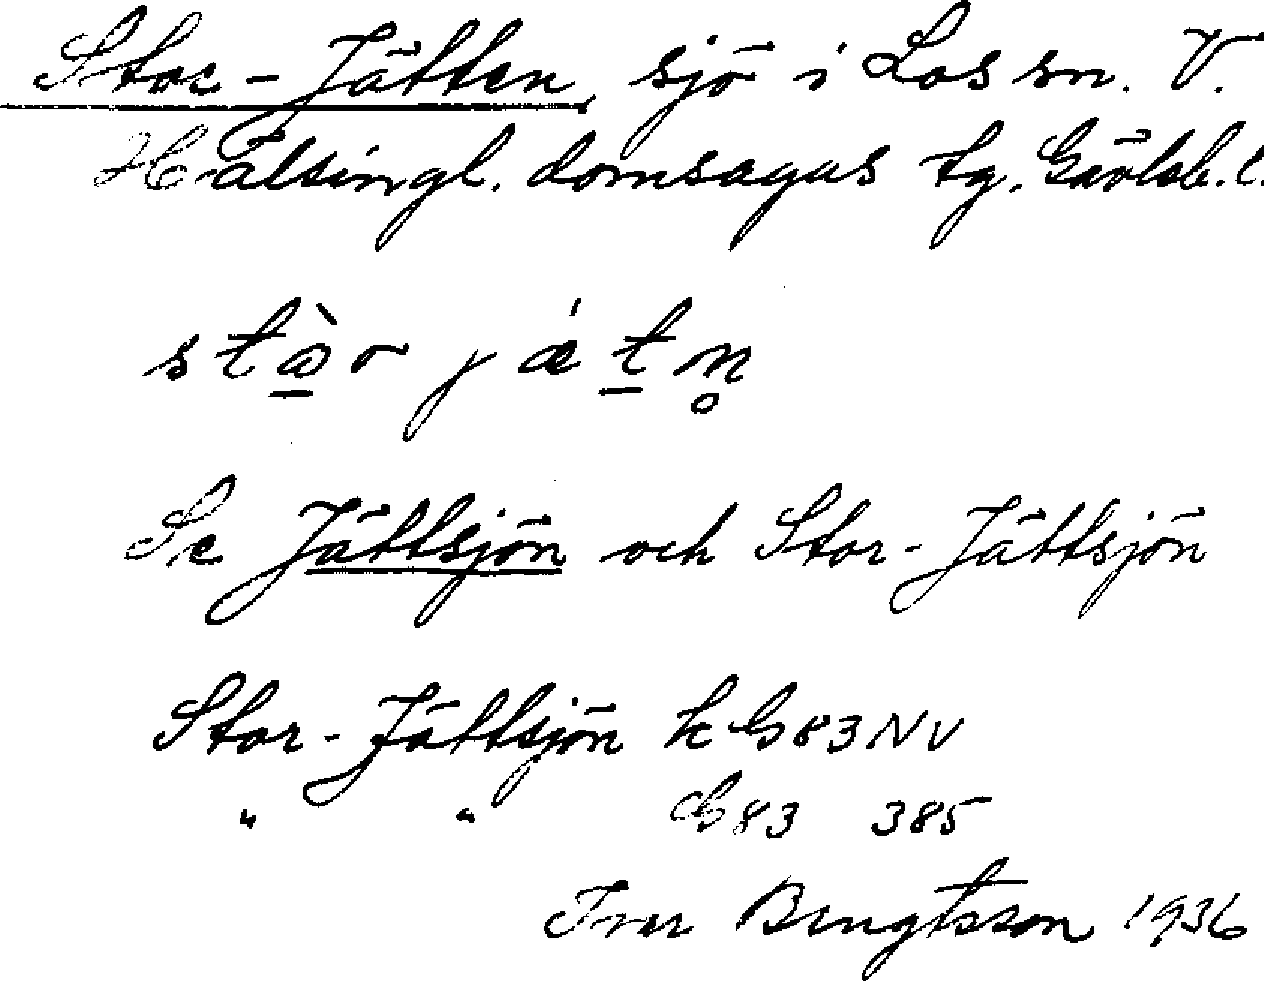 Stor-Jätten, sjö i Los sn. V.
Hälsingl. domsagas tg. Gävleb. l.
stɷ̀r jǽtn̥
Se Jättsjön och Stor-Jättsjön
Stor-Jättsjön k G83NV
" " G83 385
Ivar Bengtsson 1936